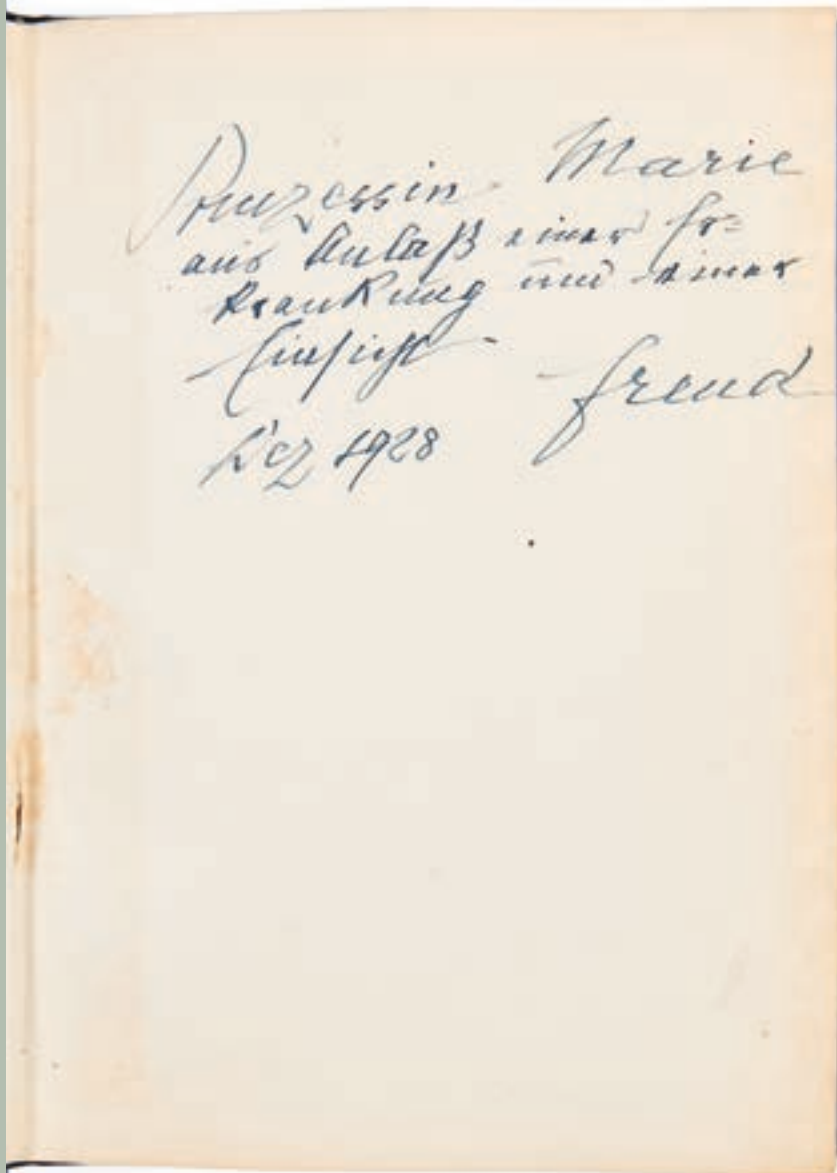 Prinzessin Marie
aus Anlaß einer Er=
krankung und einer
Einsicht
Freud
Dez 1928